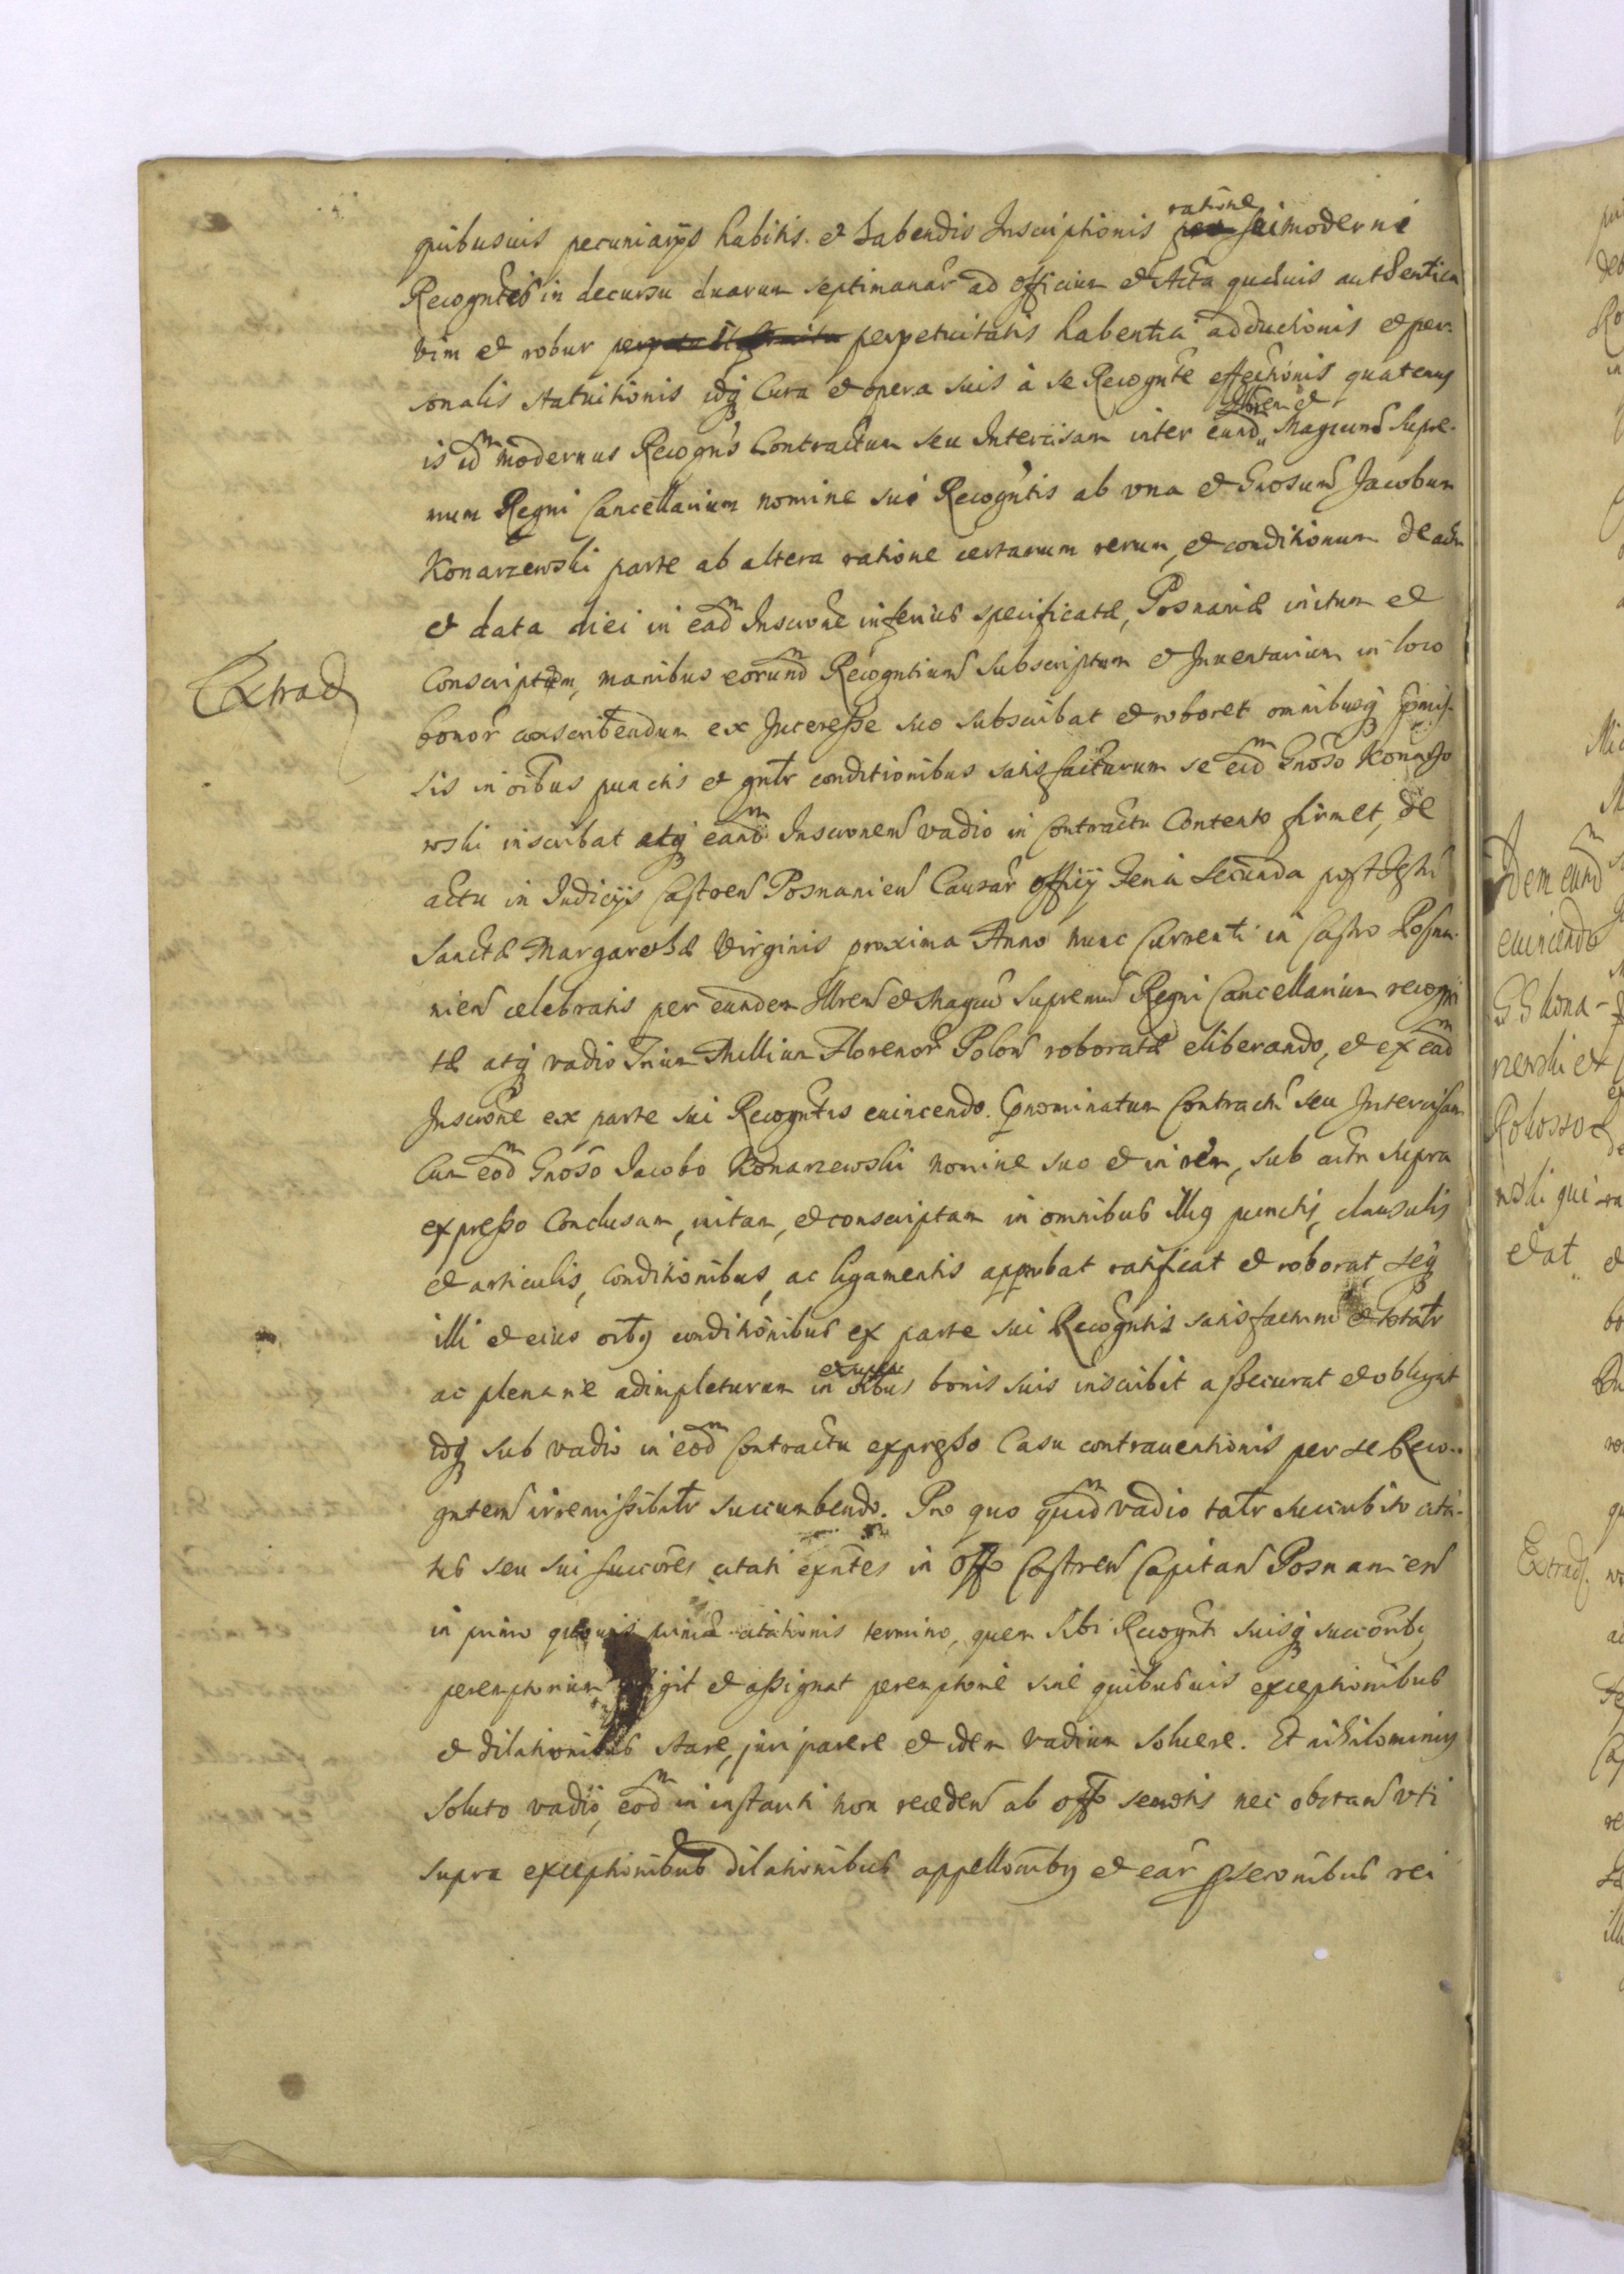 quibusuis pecuniarijs habitis et habendis Inscriptionis ratione sui moderni
Recogntis in decursu duarum septimanar ad officium et Acta quaeuis authentica
vim et robur perpetuitatis habentia adductionis et per-
sonalis statuitionis idq Cura et opera suis à se Recognte effectionis quatenus
is idm modernus Recogns Contractum seu Intercisam inter eund Illrem et Magcum Supre-
mum Regni Cancellarium nomine sui Recogntis ab vna et Gnosum Jacobum
Konarzewski parte ab altera ratione certarum rerum, et conditionum de actu
et data diei in eadm Inscrone inferius specificatae, Posnaniae initum et
Conscriptum, manibus eorundm Recogntium subscriptum et Inuentarium in loco
Extrad
bonor conscribendum ex Interesse suo subscribat et roboret omnibusq pmis-
sis in oibus punctis et gnlr conditionibus satisfacturum se eidm Gnoso Konarze
wski inscribat atq eandm Inscronem vadio in Contractu Contento firmet, de
actu in Judicijs Castren Posnanien Causar officij Feria Secunda post Festu
Sanctae Margarethae Virginis proxima Anno nunc Currenti in Castro Posna-
nien celebratis per eundem Illrem et Magcu Supremu Regni Cancellarium recogni
tae atq vadio Trium Millium Florenor Polon roboratae eliberando, et ex eadm
Inscrone ex parte sui Recogntis euincendo. Pnominatum Contractu seu Intercisam
Cum eodm Gnoso Jacobo Konarzewski nomine suo et in rem, sub actu supra
expresso Conclusam, initam, et conscriptam in omnibus illius punctis, clausulis
et articulis, conditionibus, ac ligamentis approbat ratificat et roborat, seq
illi et eius oibq conditionibus ex parte sui Recogntis satisfacturum et totalr
ac plenarie adimpleturum in oibus bonis suis inscribit assecurat et obligat
idq sub vadio in eodm Contractu expresso Casu contrauentionis per se Reco-
gntem irremissibilr succumbendo. Pro quo quidm vadio talr succubito cita-
tus seu sui succores citati exntes in Offo Castren Capitan Posnanien
in primo quouis primae citationis termino, quem sibi Recognti suisq succoribq
peremptorium figit et assignat peremptorie sine quibusuis exceptionibus
et dilationibus stare, juri parere et idem vadium soluere. Et nihilominus
Soluto vadio, eodm in instanti non receden ab offo seruatis nec obstan vti
supra exceptionibus dilationibus appellonibq et ear pseconibus rei
Idem eundm
euincendo
GG Kona-
rzewski et
Rokosso-
wski qui
edat
Extrad.